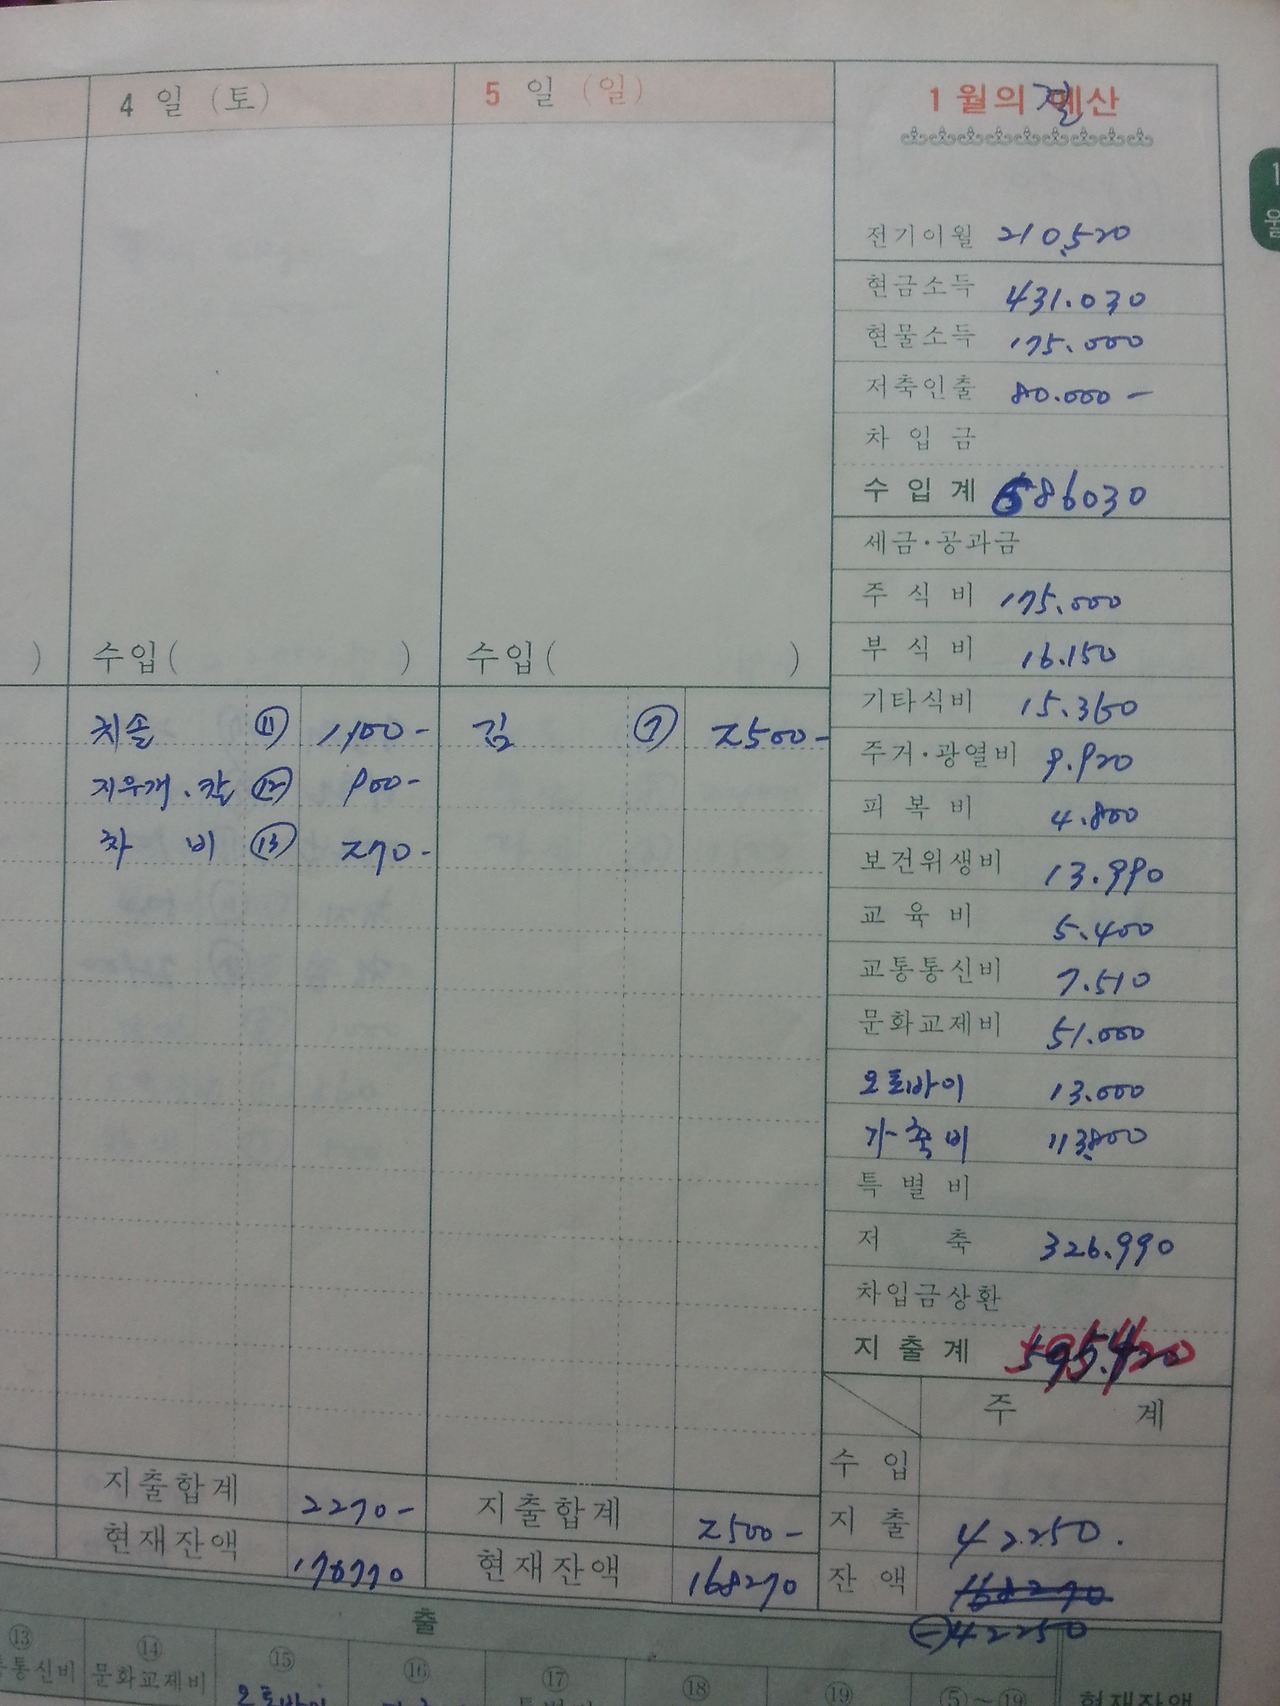 4 일 (토)
5 일 (일)
1 월의 예산
결
1
월
전기이월 210,520
현금소득 431.030
현물소득 175.000
저축인출 80.000 -
차 입 금
수 입 계 686030
세금·공과금
주 식 비 175.000
부 식 비 16.150
기타식비 15.360
주거·광열비 9.920
피 복 비 4.800
보건위생비 13.990
교 육 비 5.400
교통통신비 7.510
문화교제비 51.000
오토바이 13.000
가축비 113,800
특 별 비
저 축 326.990
차입금상환
지 출 계 595.420
)
수입( )
수입( )
치솔 ⑪ 1,100-
지우개.칼 ⑫ 900-
차 비 ⑬ 270-
김 ⑦ 2500-
지출합계 2270-
현재잔액 170770
지출합계 2500-
현재잔액 168270
주 계
수 입
지 출 42250.
잔 액 168270
⊖42250
출
⑬
통통신비
⑭
문화교제비
⑮
오토바이
⑯
⑰
특별비
⑱
⑲
⑤~⑲
현재잔액